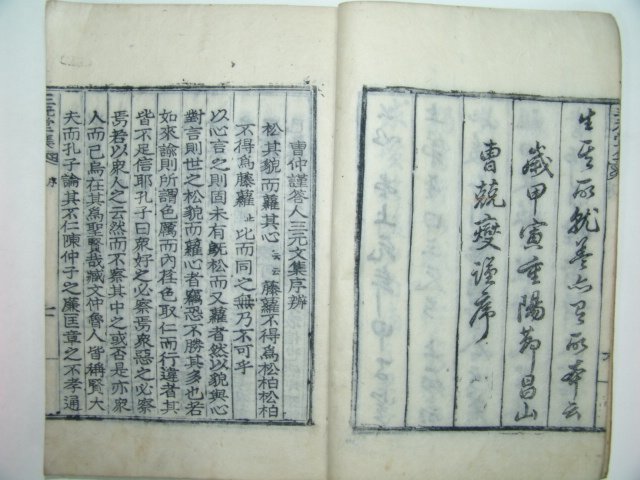 生至所就着亦見所存云
歲甲寅重陽節昌山
曺兢燮謹序
曺仲謹答人三元文集序辨
松其貌而蘿其心云云藤蘿不得爲松柏松柏
不得爲藤蘿止比而同之無乃不可乎
以心言之則固未有旣松而又蘿者然以貌與心
對言則世之松貌而蘿心者竊恐不勝其多也若
如來諭則所謂色厲而內荏色取仁而行違者其
皆不足信耶孔子曰衆好之必察焉衆惡之必察
焉若以衆人之云然而不察其中之或否是亦衆
人而已烏在其爲聖賢哉臧文仲魯人皆稱賢大
夫而孔子論其不仁陳仲子之廉匡章之不孝通
序